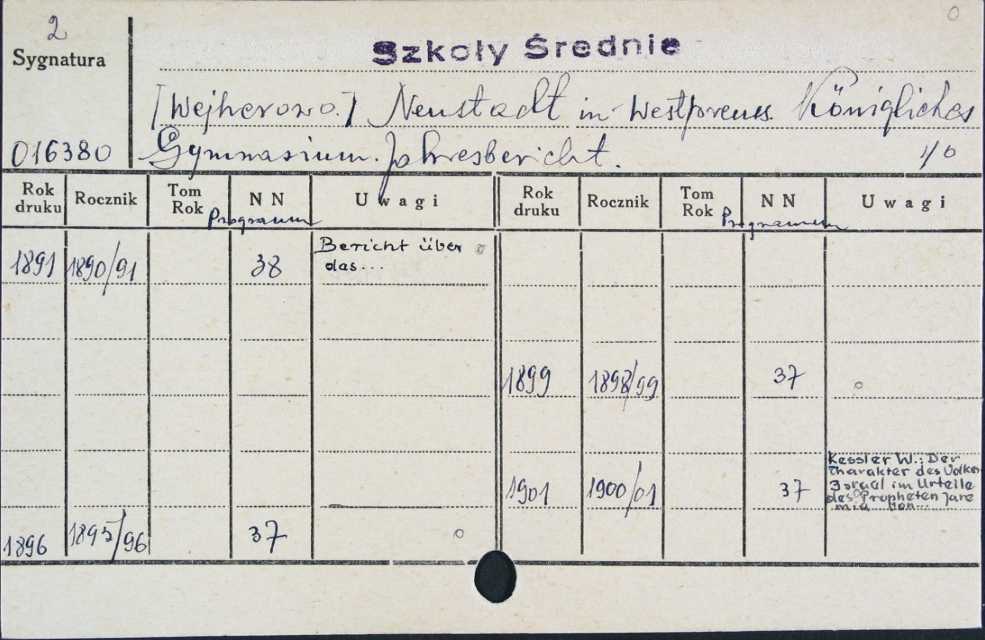 2
Sygnatura
Szkoły Średnie
[Wejherowo.] Neustadt in Westpreuss. Königliches
016380 Gymnasium. Jahresbericht. 1/0
Rok druku Rocznik Tom Rok NN Uwagi Rok druku Rocznik Tom Rok NN Uwagi
Programm Programm
1891 1890/91 38 Bericht über
das...
1899 1898/99 37
1901 1900/01 37 Kessler W.: Der
Charakter des Volkes
Israel im Urteile
des Propheten Jere
mia von...
1896 1895/96 37